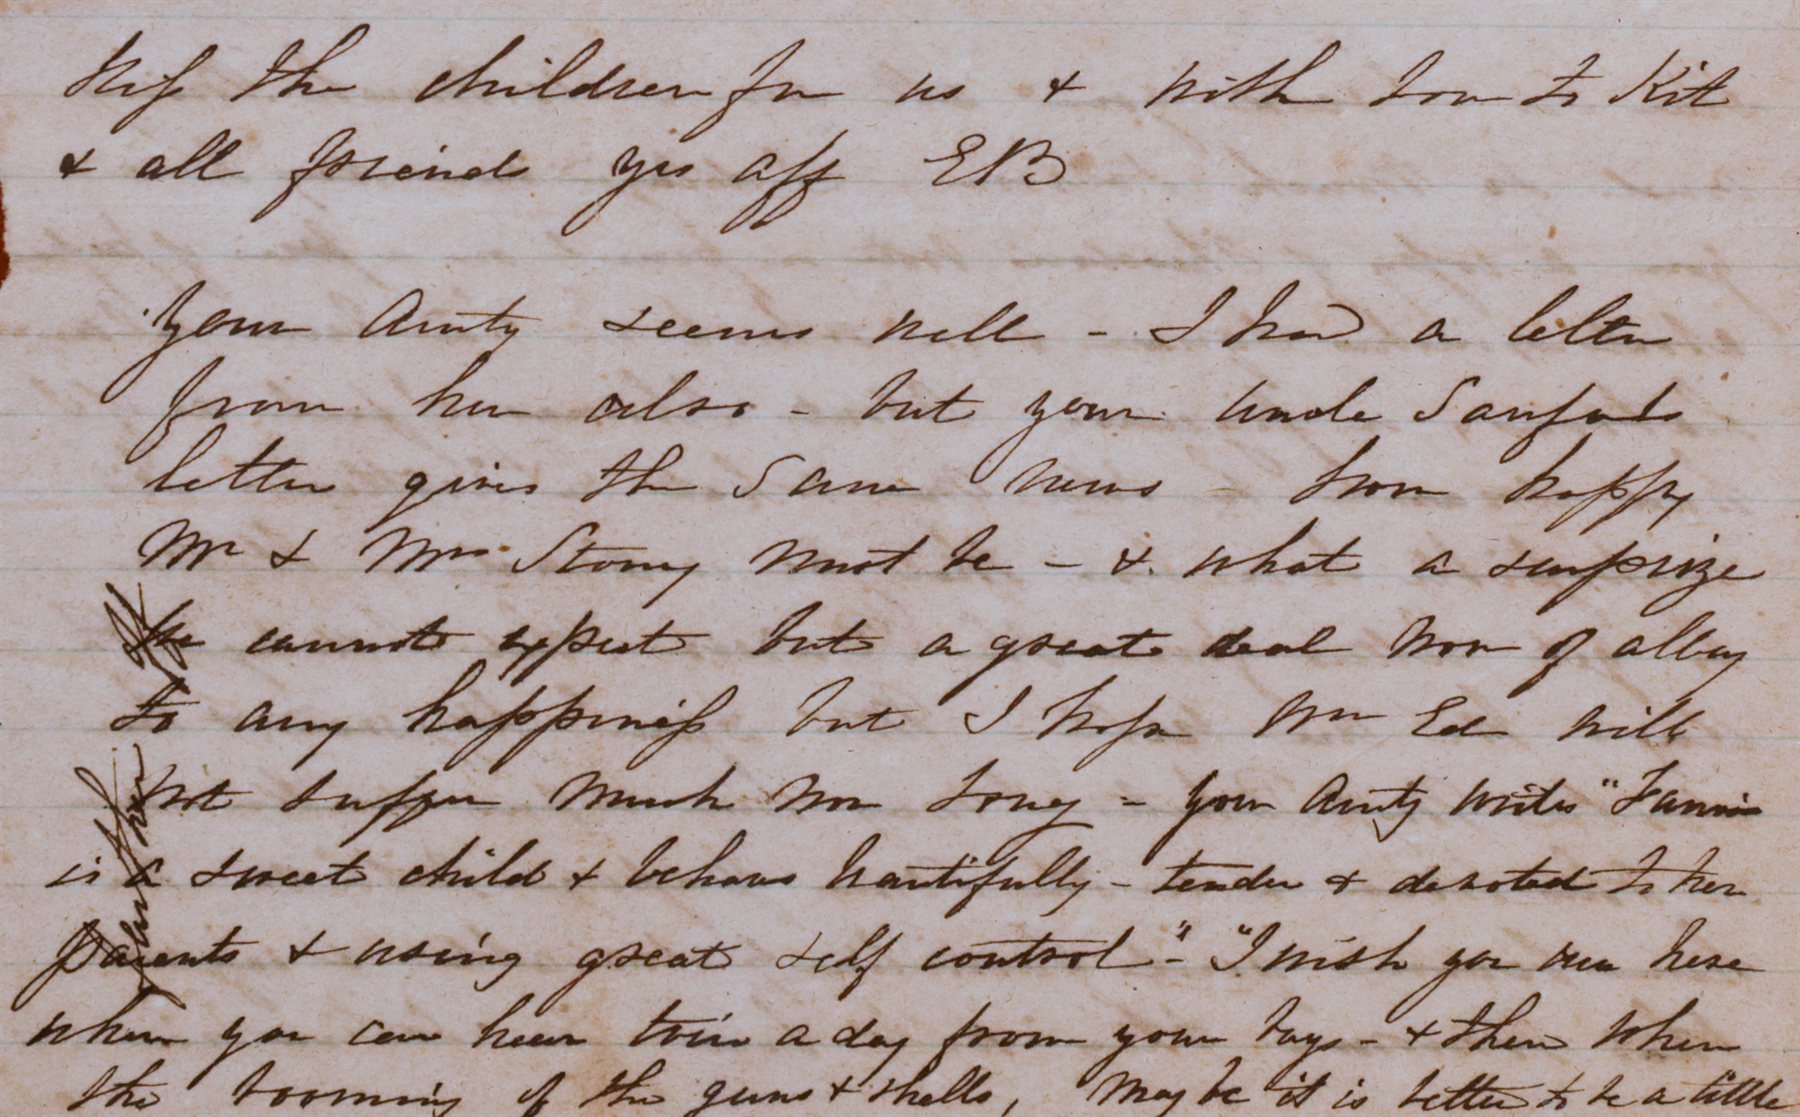 Kiss the children for us & with love to Kit
& all friends yrs aff EB
Your Aunty seems well - I had a letter
from her also - but your Uncle Sanfords
letter gives the same news - how happy
Mr & Mrs Stoney must be - & what a surprize
We cannot expect but a great deal now of alloy
to any happiness but I hope Mr Ed will
not suffer much now long - your Aunty writes "Fannie
is a sweet child & behaves beautifully - tender & devoted to her
parents & using great self control" - "I wish you were here
where you can hear twice a day from your boys - & then when
the booming of the guns & shells, may be it is better to be a little